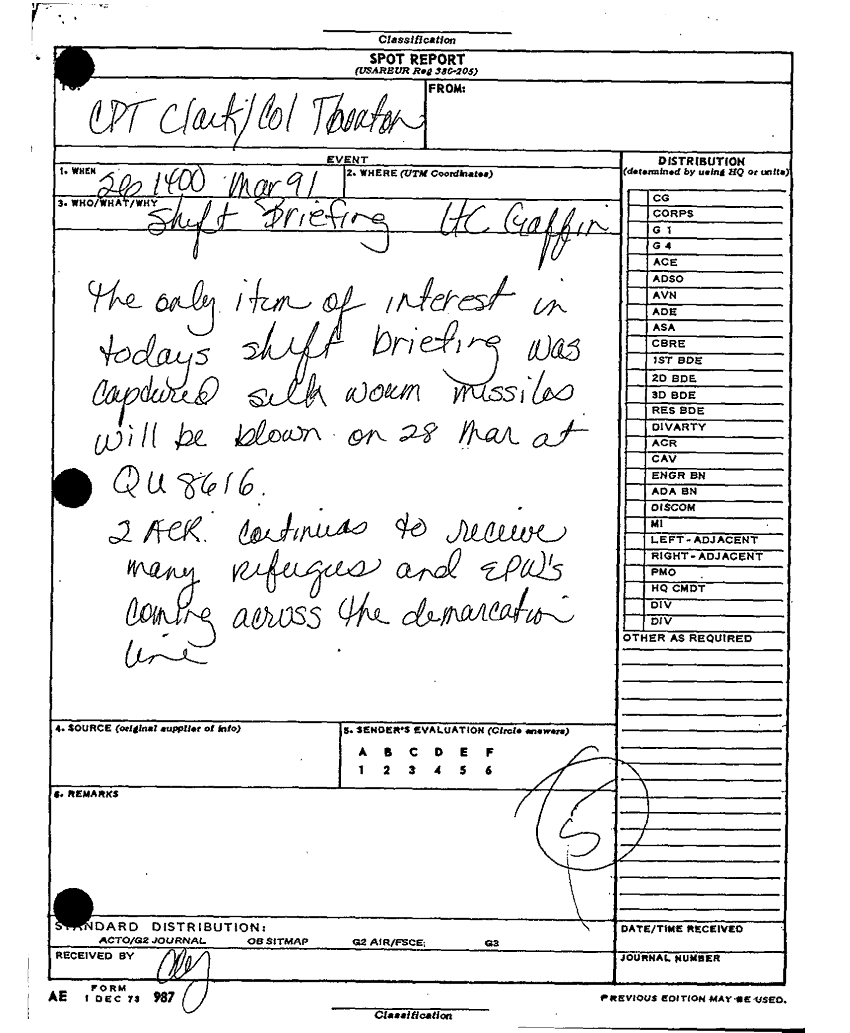 Classification
SPOT REPORT
(USAREUR Reg 380-205)
FROM:
CPT Clark/Col
EVENT
1. WHEN
1400 Mar 91
2. WHERE (UTM Coordinates)
3. WHO/WHAT/WHY
Shift Briefing LTC Gaffin
The only item of interest in
todays shift briefing was
captured silk worm missiles
will be blown on 28 Mar at
QU 8616.
2 ACR. continues to receive
many refugees and EPW's
coming across the demarcation
line
DISTRIBUTION
(determined by using HQ or units)
CG
CORPS
G 1
G 4
ACE
ADSO
AVN
ADE
ASA
CBRE
1ST BDE
2D BDE
3D BDE
RES BDE
DIVARTY
ACR
CAV
ENGR BN
ADA BN
DISCOM
MI
LEFT-ADJACENT
RIGHT-ADJACENT
PMO
HQ CMDT
DIV
DIV
OTHER AS REQUIRED
4. SOURCE (original supplier of info)
5. SENDER'S EVALUATION (Circle answers)
A B C D E F
1 2 3 4 5 6
6. REMARKS
5
STANDARD DISTRIBUTION:
ACTO/G2 JOURNAL OB SITMAP G2 AIR/FSCE; G3
RECEIVED BY
DATE/TIME RECEIVED
JOURNAL NUMBER
AE FORM 1 DEC 73 987
PREVIOUS EDITION MAY BE USED.
Classification